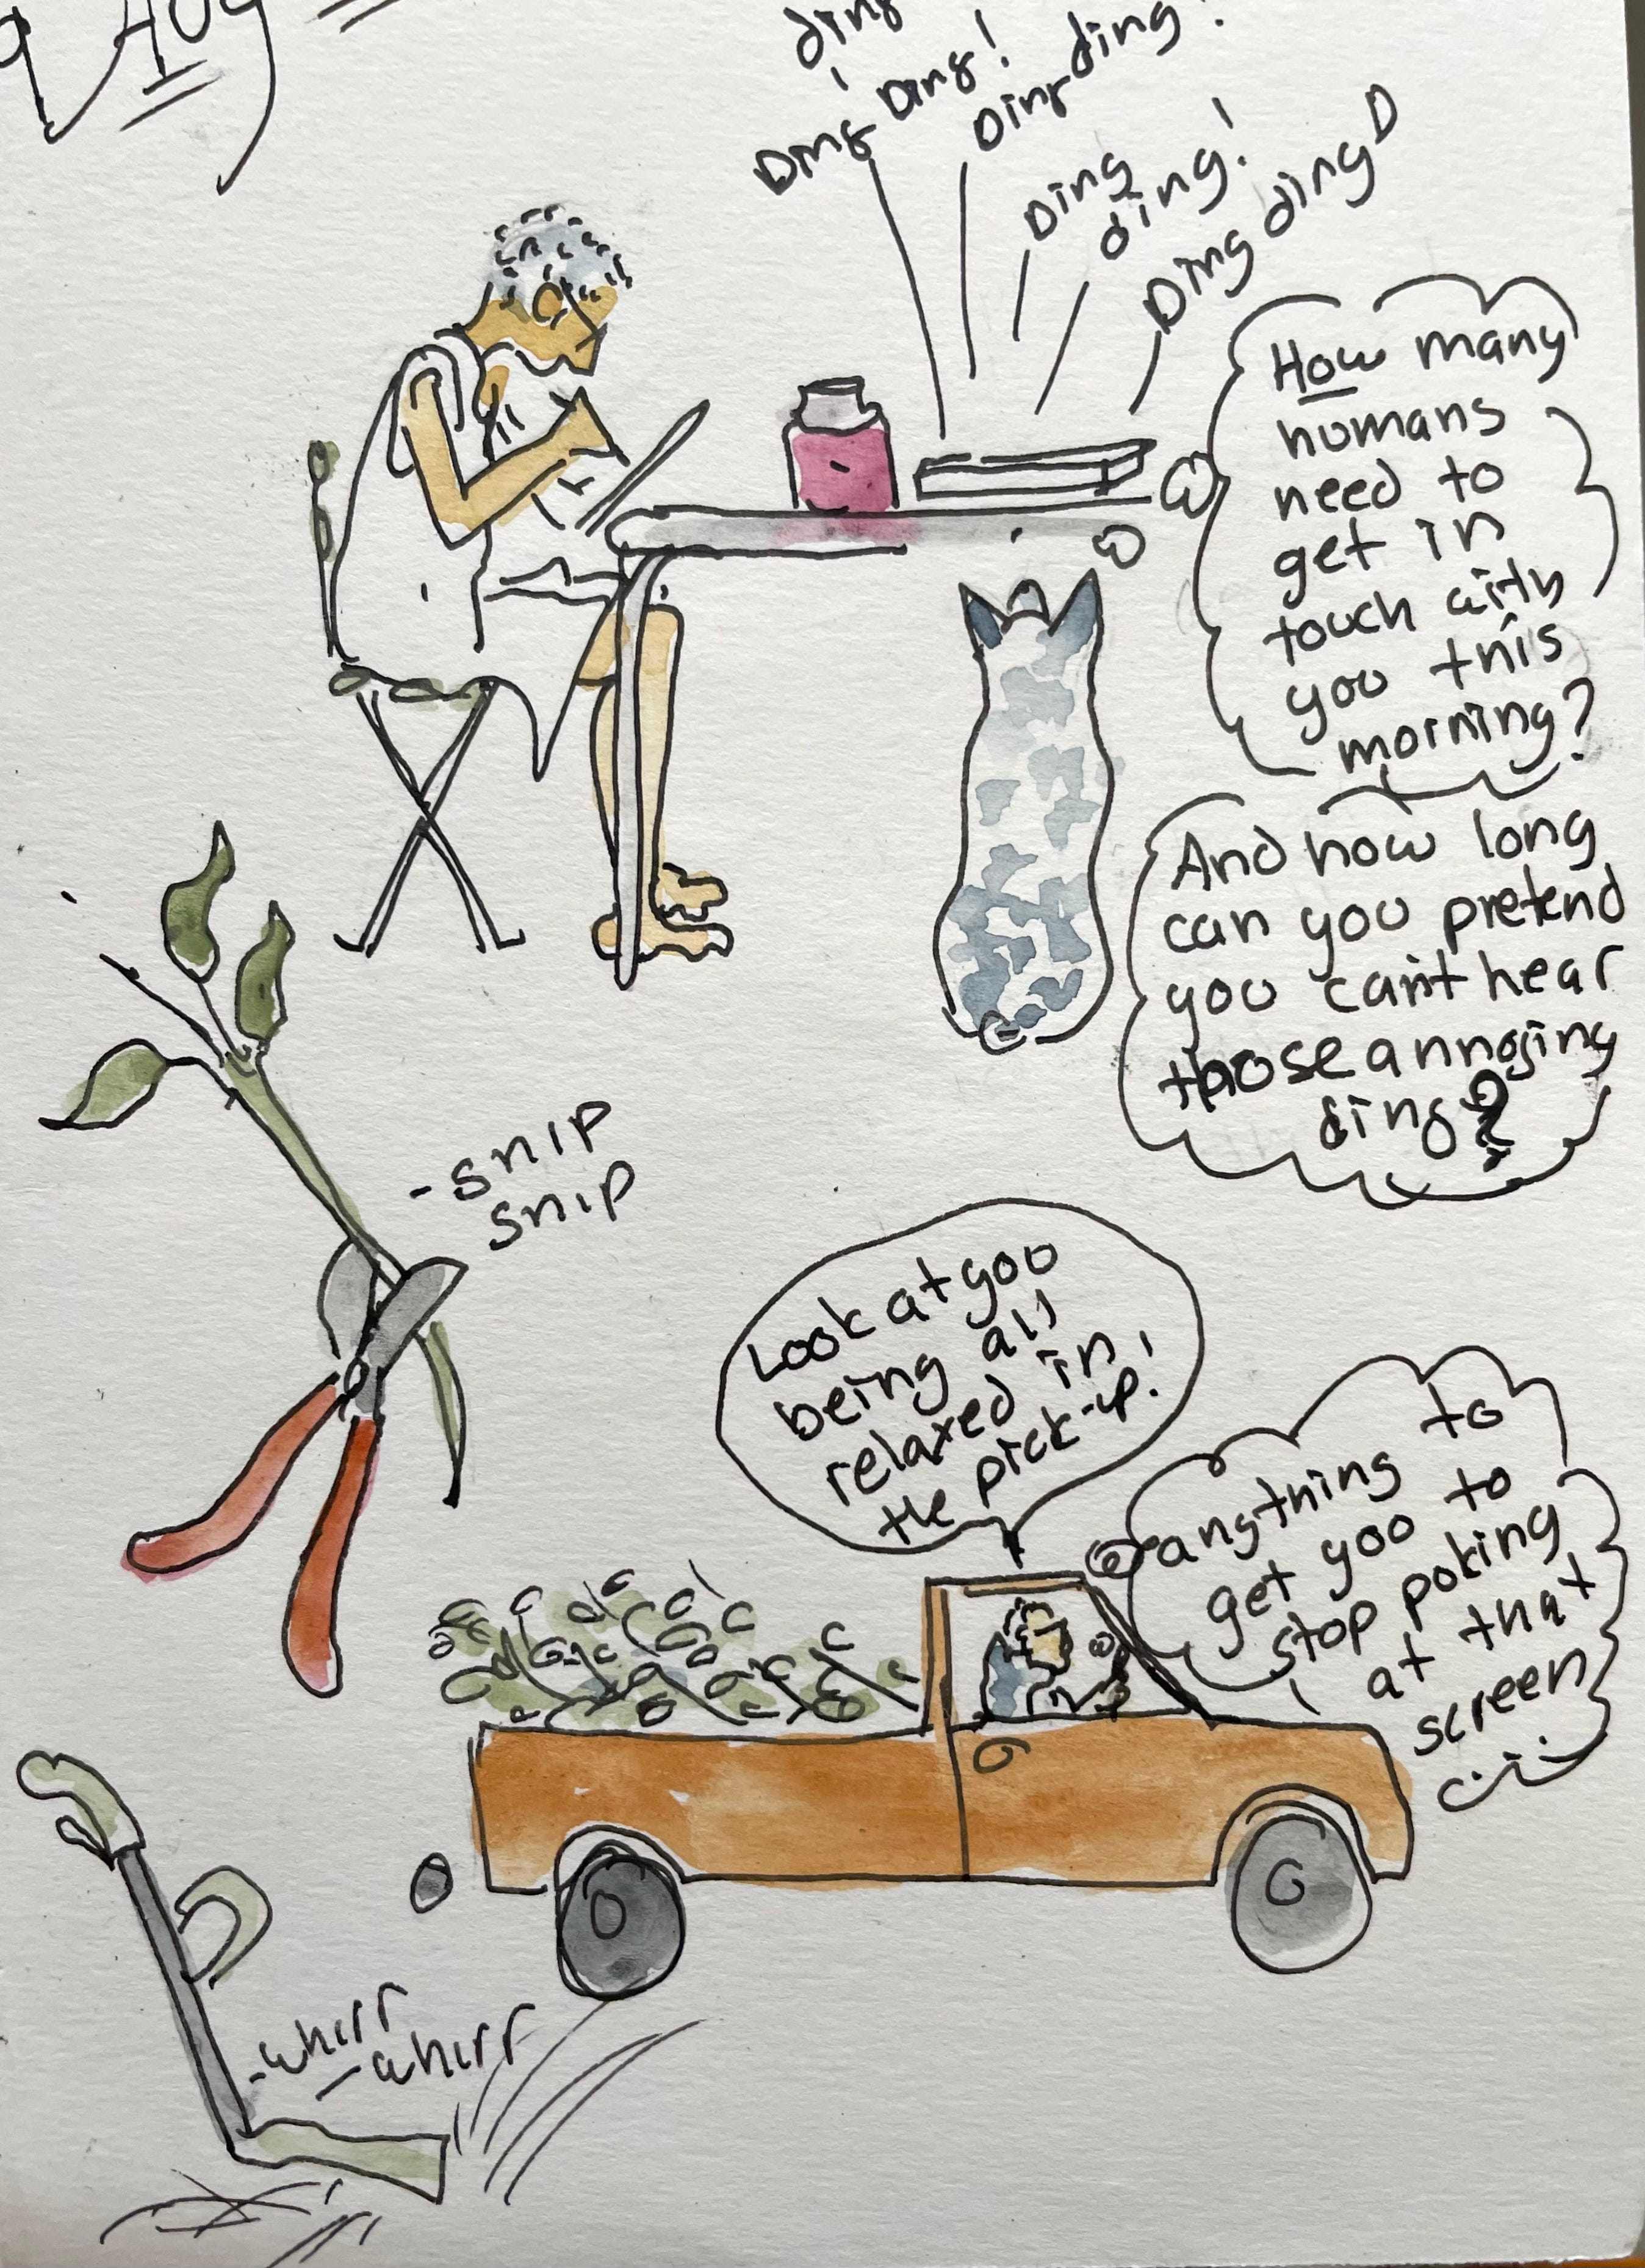 Aug
ding
Ding Ding!
Ding ding!
Ding
ding!
Ding ding D
How many
humans
need to
get in
touch with
you this
morning?
And how long
can you pretend
you can't hear
those annoying
ding?
-snip
snip
Look at you
being all
relaxed in
the pick-up!
anything to
get you to
stop poking
at that
screen
-whirr
-whirr